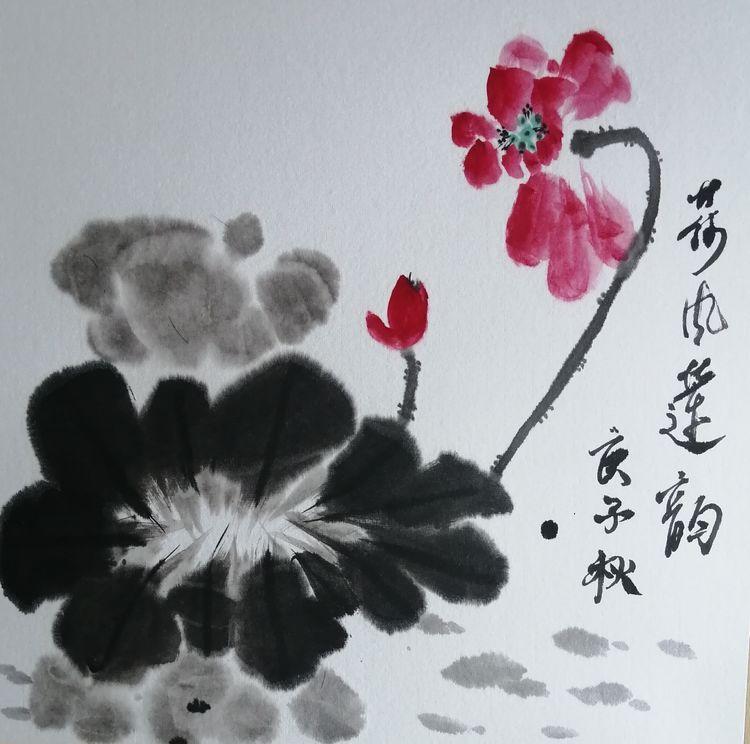 荷风莲韵
庚子秋